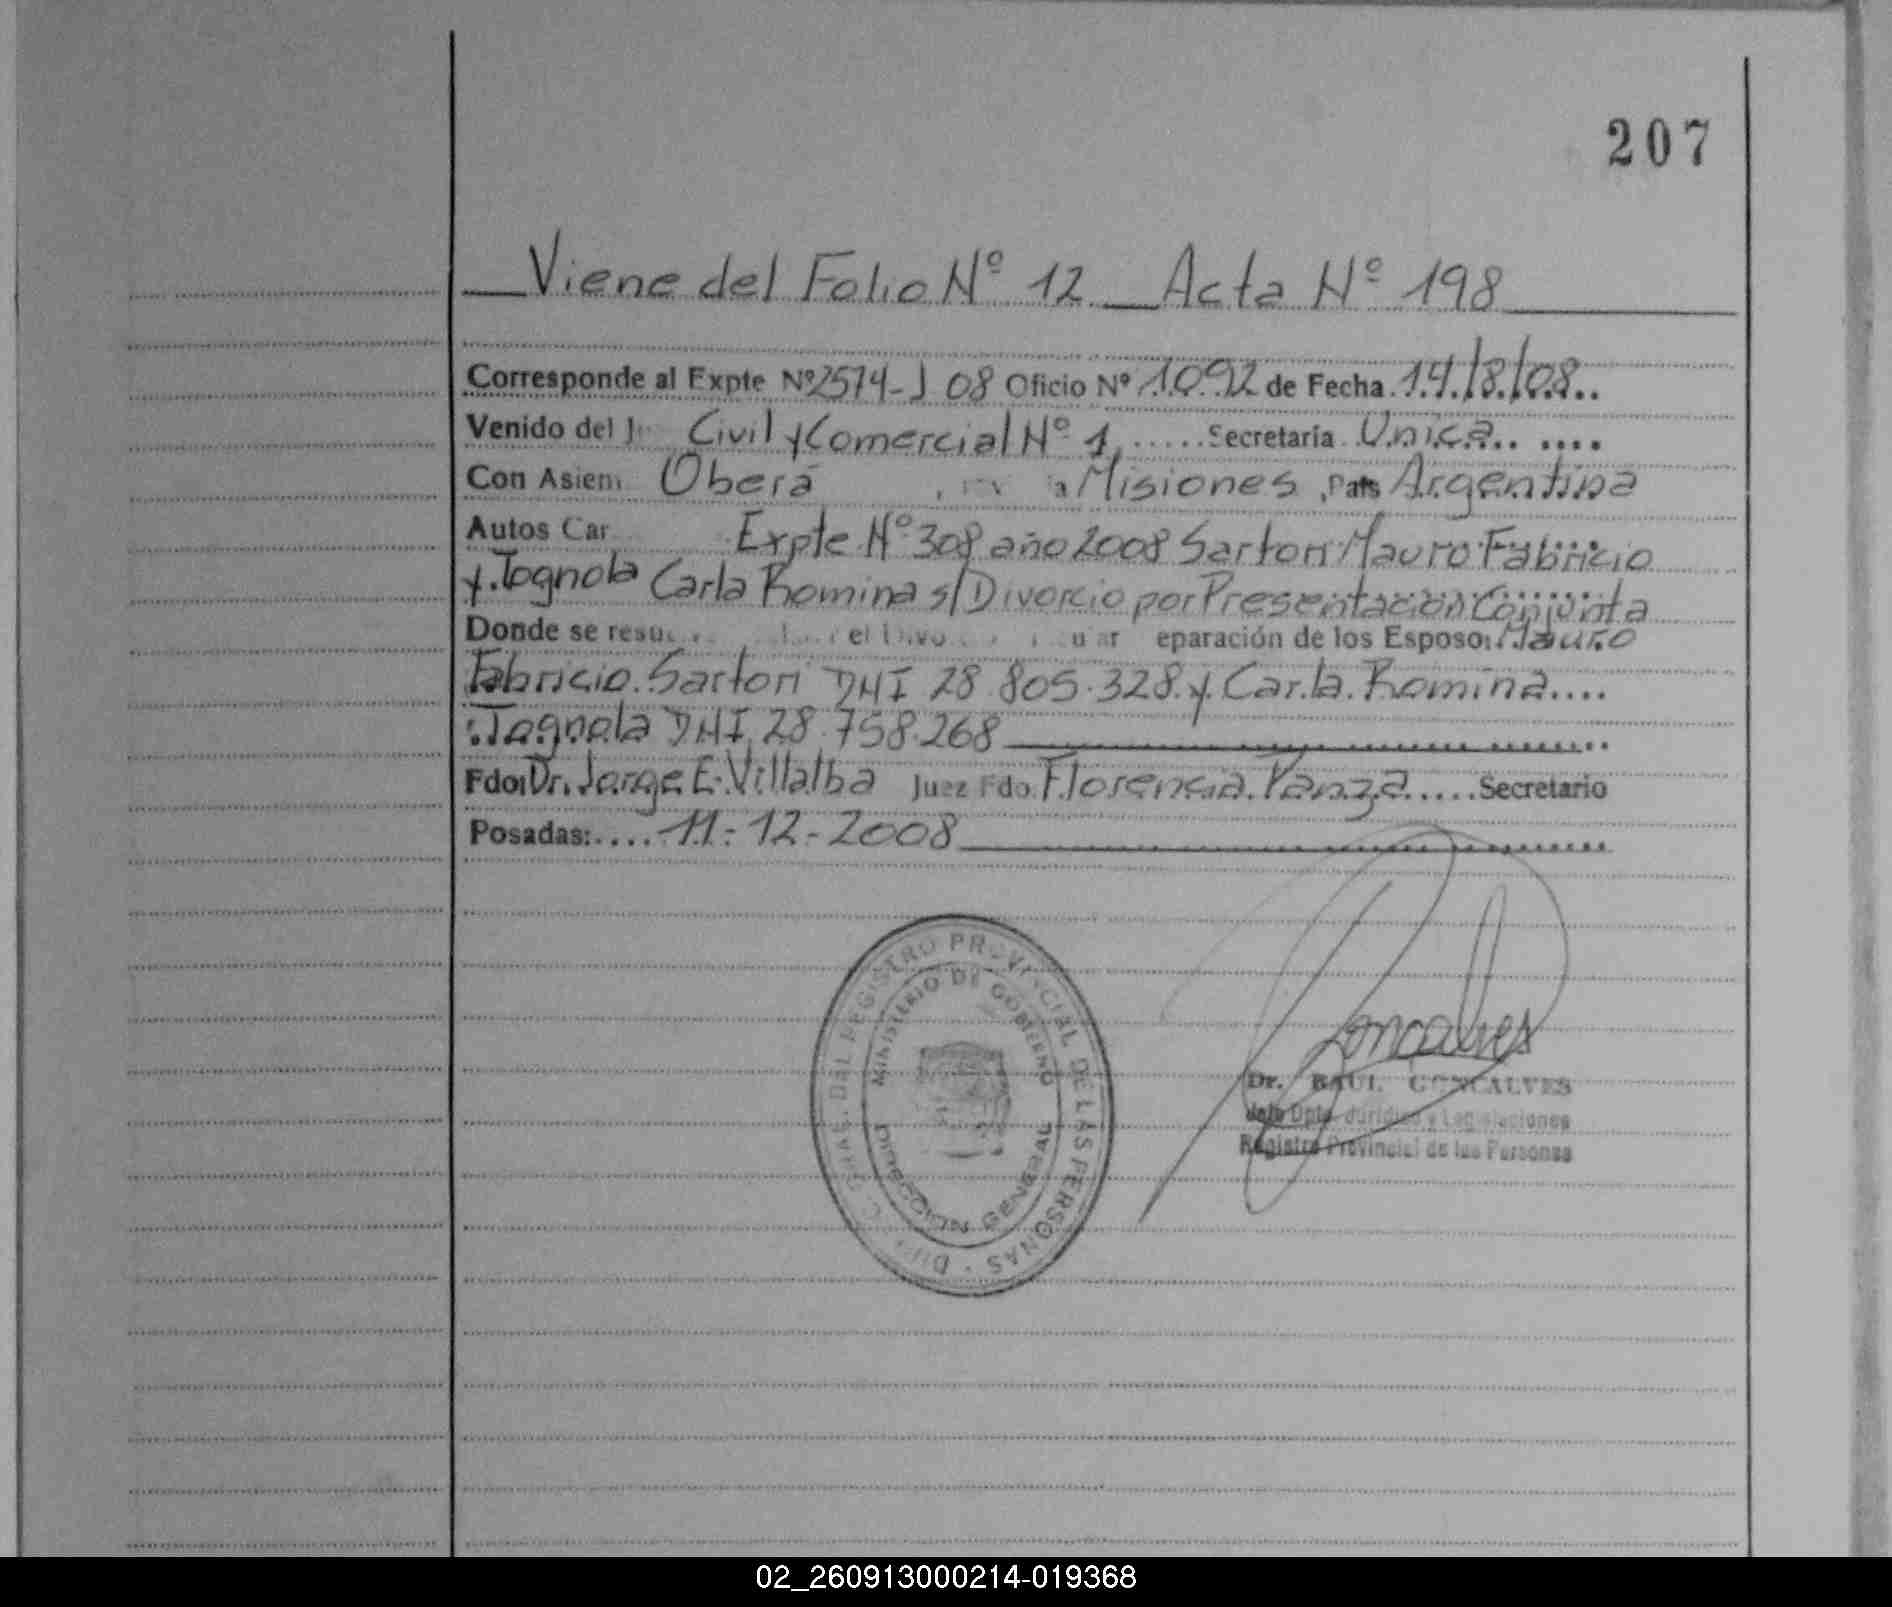 207
Viene del Folio Nº 12 Acta Nº 198
Corresponde al Expte Nº 2574-J 08 Oficio Nº 1092 de Fecha 14/8/08
Venido del Civil y Comercial Nº 1 Secretaría Unica
Con Asien Oberá Misiones, País Argentina
Autos Car Expte Nº 308 año 2008 Sartori Mauro Fabricio
y Tognola Carla Romina s/ Divorcio por Presentación Conjunta
Donde se resu el Divo eparación de los Esposos Mauro
Fabricio Sartori DNI 28.805.328 y Carla Romina
Tognola DNI 28.758.268
Fdo: Dr. Jorge E. Villalba Juez Fdo. Florencia Panza Secretario
Posadas: 11-12-2008
DEL REGISTRO PROVINCIAL DE LAS PERSONAS
MINISTERIO DE GOBIERNO
DIRECCION GENERAL
Goncalves
Dr. RAUL GONCALVES
Jefe Dpto. Jurídico y Legislaciones
Registro Provincial de las Personas
02_260913000214-019368